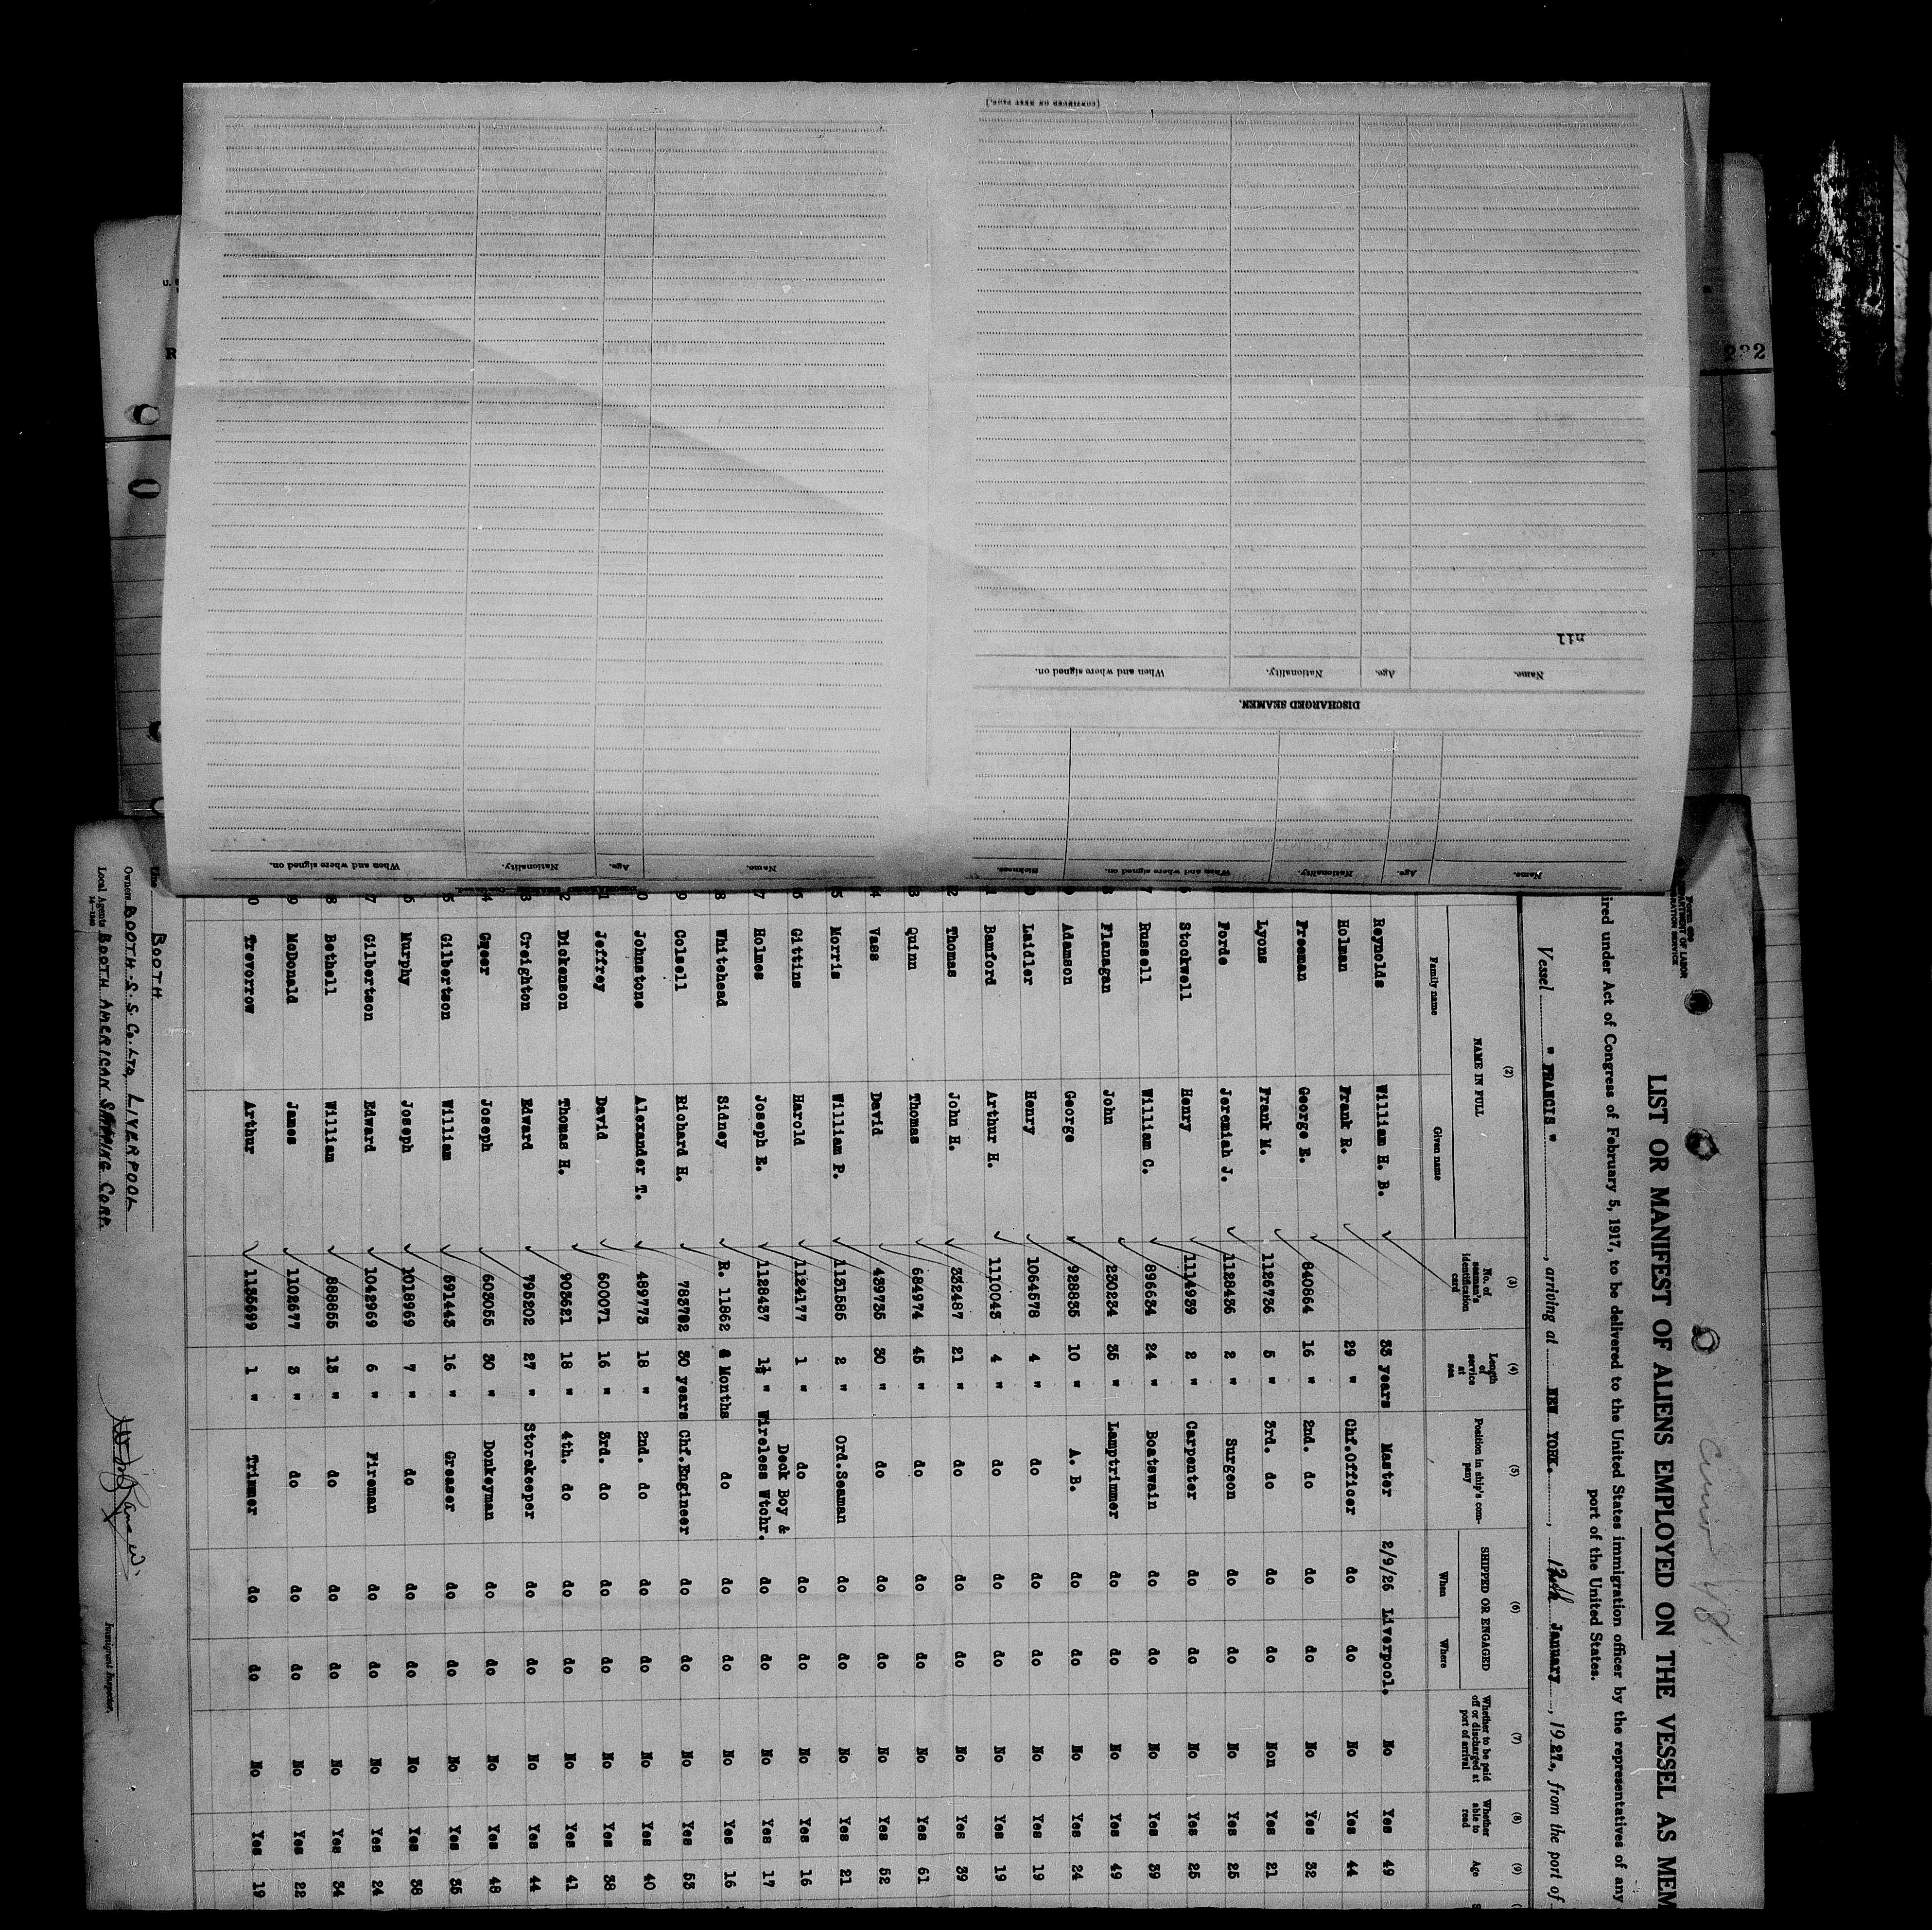 Form 689
LIST OR MANIFEST OF ALIENS EMPLOYED ON THE VESSEL AS MEM
ired under Act of Congress of February 5, 1917, to be delivered to the United States immigration officer by the representatives of any
port of the United States.
Vessel " FRANCIS ", arriving at NEW YORK., January, 1927., from the port of
(2) (3) (4) (5) (6) (7) (8) (9)
NAME IN FULL No. of seaman's identification card Length of service at sea Position in ship's company SHIPPED OR ENGAGED Whether to be paid off or discharged at port of arrival Whether able to read Age
Family name Given name When Where
Reynolds William H. B. 33 years Master 2/9/26 Liverpool. No Yes 49
Holman Frank R. 29 " Chf.Officer do do No Yes 44
Freeman George E. 840864 16 " 2nd. do do do No Yes 32
Lyons Frank M. 1126736 5 " 3rd. do do do Non Yes 21
Forde Jeremiah J. 1128436 2 " Surgeon do do No Yes 25
Stockwell Henry 1114939 2 " Carpenter do do No Yes 25
Russell William C. 896634 24 " Boatswain do do No Yes 39
Flanagan John 230234 35 " Lamptrimmer do do No Yes 49
Adamson George 928835 10 " A. B. do do No Yes 24
Laidler Henry 1064578 4 " do do do No Yes 19
Bamford Arthur H. 1110043 4 " do do do No Yes 19
Thomas John H. 332487 21 " do do do No Yes 39
Quinn Thomas 684974 45 " do do do No Yes 61
Vass David 439735 30 " do do do No Yes 52
Morris William P. 1131585 2 " Ord.Seaman do do No Yes 21
Gittins Harold 1124177 1 " Deck Boy & do do No Yes 16
Holmes Joseph E. 1128437 1½ " Wireless Wtchr. do do No Yes 17
Whitehead Sidney R. 11862 4 Months do do do No Yes 16
Colsell Richard H. 783702 30 years Chf.Engineer do do No Yes 53
Johnstone Alexander T. 489773 18 " 2nd. do do do No Yes 40
Jeffrey David 600071 16 " 3rd. do do do No Yes 38
Dickenson Thomas H. 903621 18 " 4th. do do do No Yes 41
Creighton Edward 795202 27 " Storekeeper do do No Yes 44
Greer Joseph 603055 30 " Donkeyman do do No Yes 48
Gilbertson William 591443 16 " Greaser do do No Yes 35
Murphy Joseph 1018969 7 " do do do No Yes 38
Gilbertson Edward 1042969 6 " Fireman do do No Yes 24
Bethell William 888855 13 " do do do No Yes 34
McDonald James 1102677 3 " do do do No Yes 22
Trevorrow Arthur 1136699 1 " Trimmer do do No Yes 19
BOOTH
Owners BOOTH. S. S. Co. LTD, LIVERPOOL
Local Agents BOOTH AMERICAN SHIPPING CORP.
Immigrant Inspector.
Name. Age. Nationality. When and where signed on. Sickness.
DISCHARGED SEAMEN.
Name. Age. Nationality. When and where signed on.
nil
[CONTINUED ON NEXT PAGE.]
Name. Age. Nationality. When and where signed on.